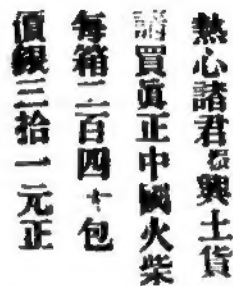 熱心諸君振興土貨
請買真正中國火柴
每箱二百四十包
價銀三拾一元正